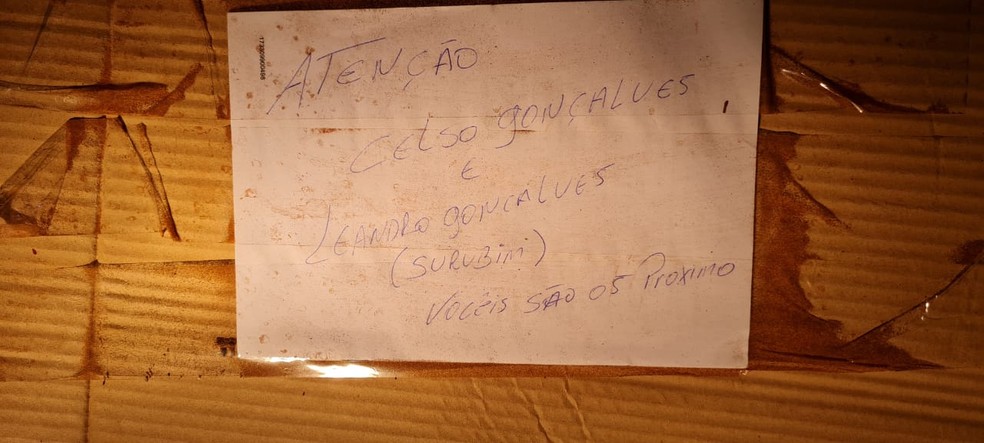 ATENÇÃO
CELSO GONÇALVES
E
LEANDRO GONCALVES
(SURUBIM)
VOCÊIS SÃO OS PROXIMO